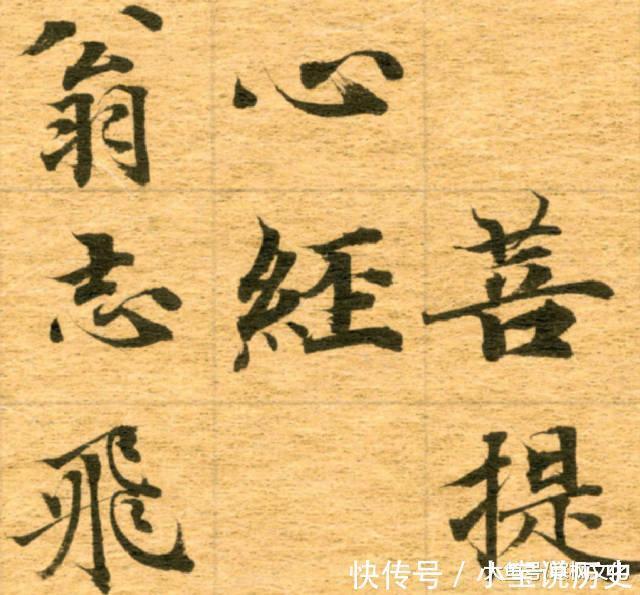 菩提
心經
翁志飛
快传号/小宝说历史